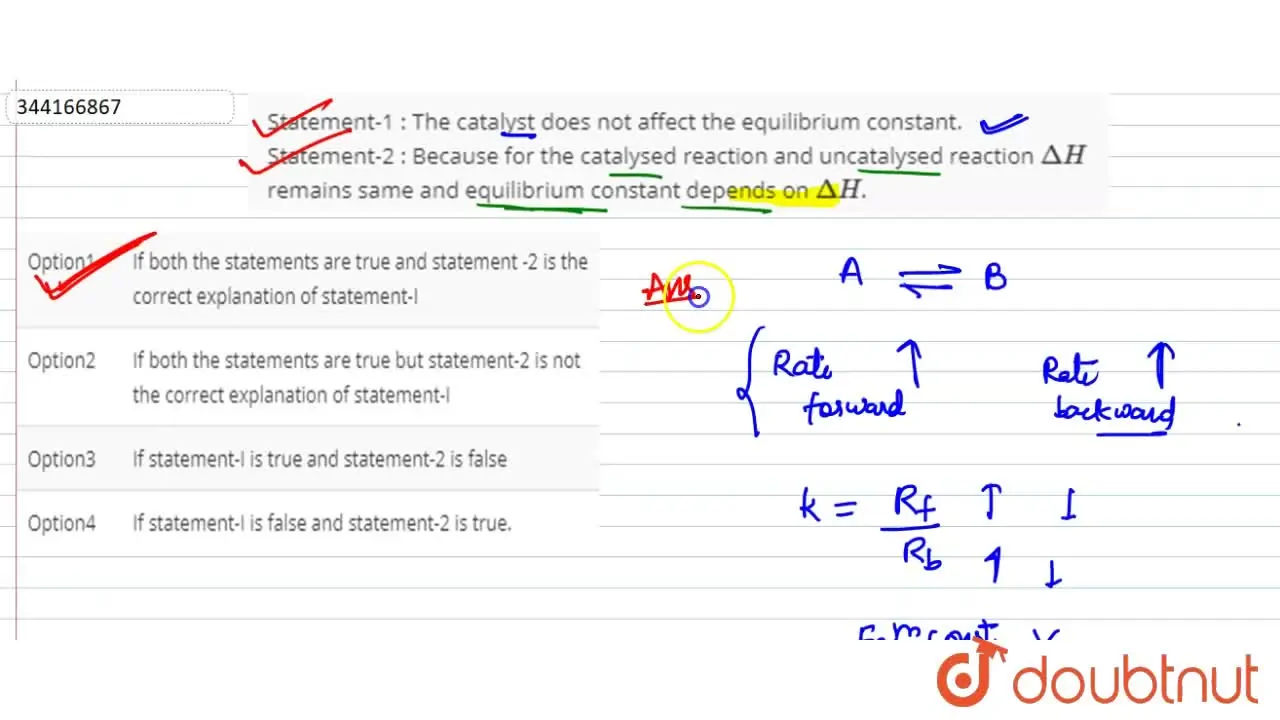 344166867
Statement-1 : The catalyst does not affect the equilibrium constant.
Statement-2 : Because for the catalysed reaction and uncatalysed reaction ΔH
remains same and equilibrium constant depends on ΔH.
Option1 If both the statements are true and statement -2 is the
correct explanation of statement-I
Option2 If both the statements are true but statement-2 is not
the correct explanation of statement-I
Option3 If statement-I is true and statement-2 is false
Option4 If statement-I is false and statement-2 is true.
Ans
A ⇌ B
Rate ↑ Rate ↑
forward backward
k = Rf ↑ ↓
Rb ↑ ↓
doubtnut